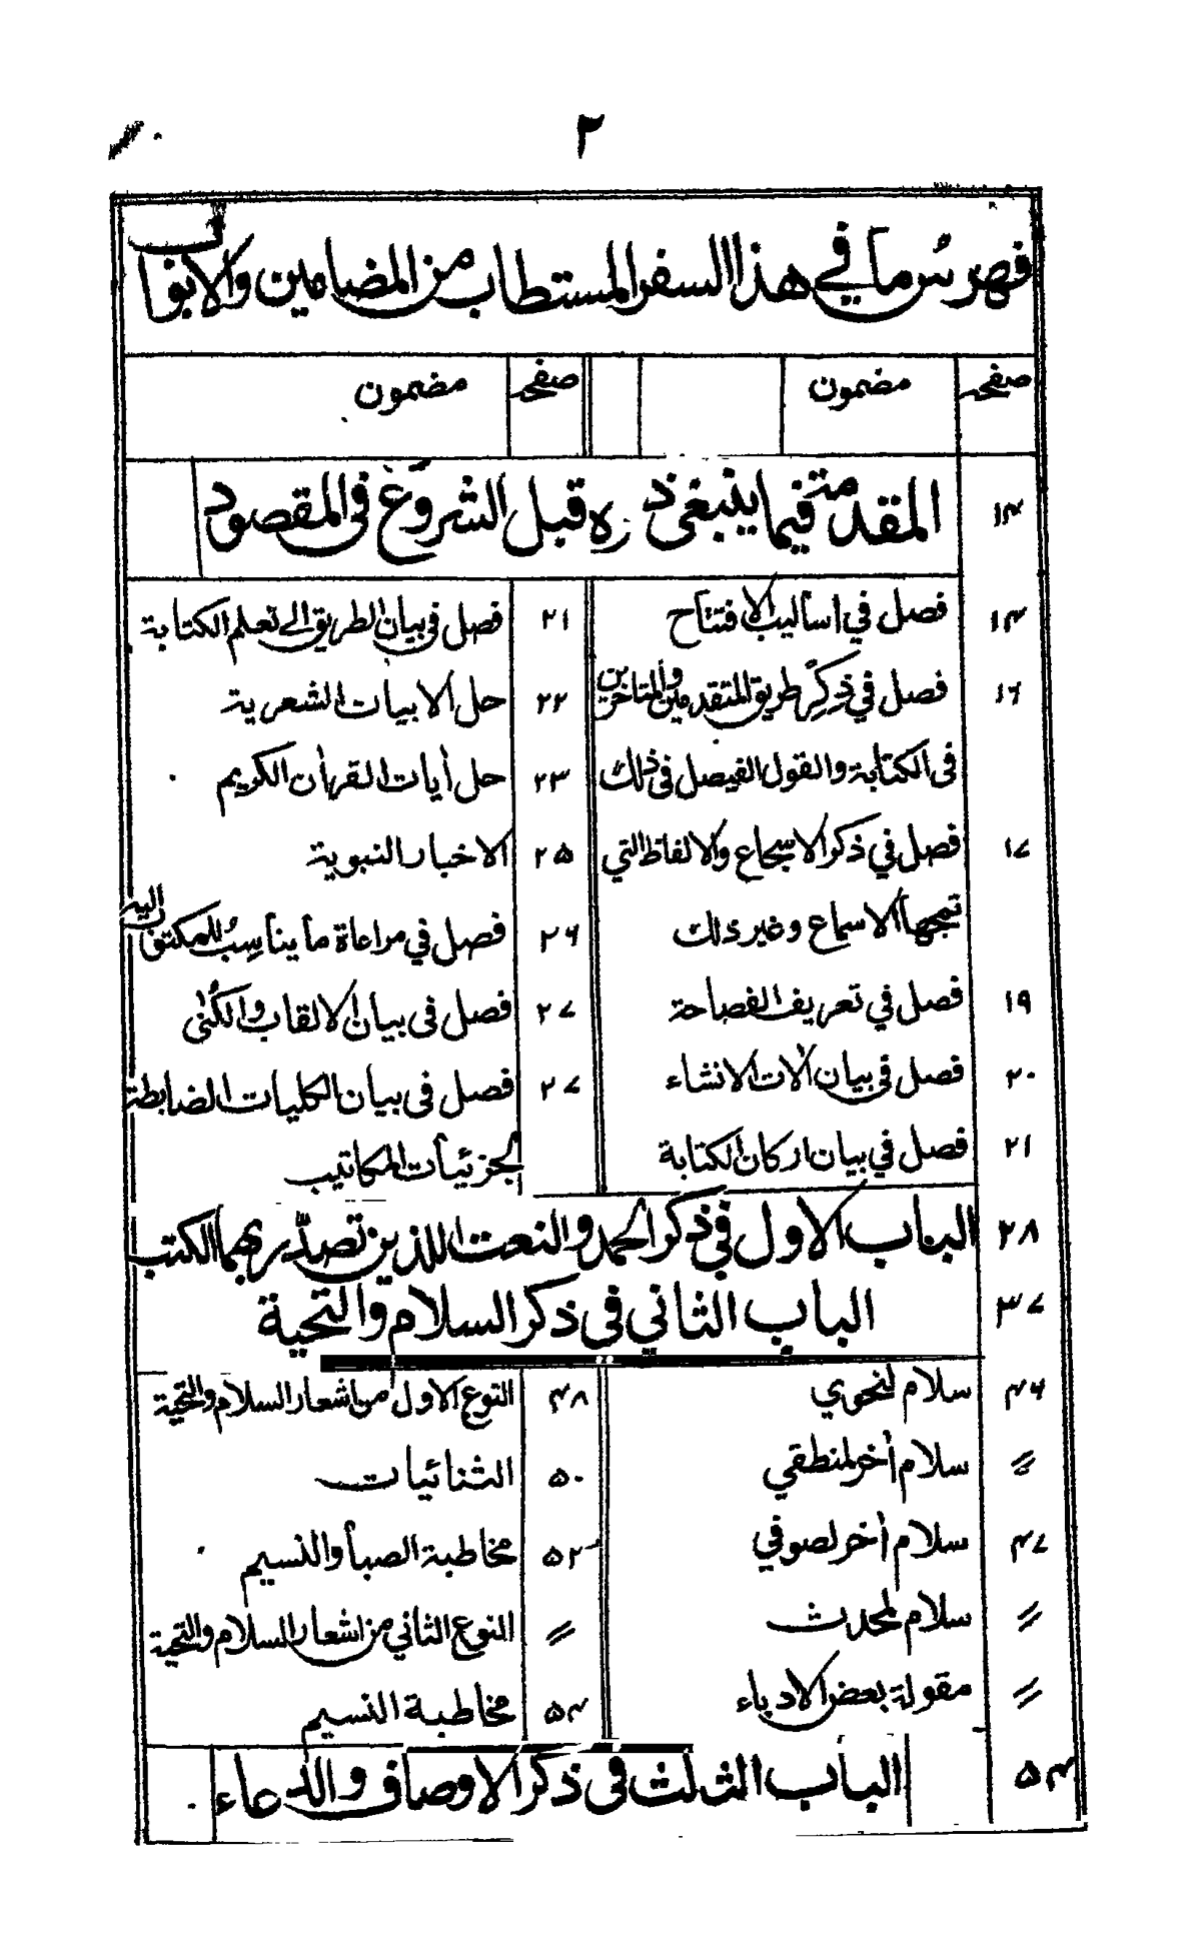 ٢
فهرس ما في هذا السفر المستطاب من المضامين والابواب
صفحہ مضمون صفحہ مضمون
١۴ المقدمة فيما ينبغي ذ ره قبل الشروع في المقصود
١۴ فصل في اساليب الافتتاح
١٦ فصل في ذكر طريق المتقدمين والمتاخرين
في الكتابة والقول الفيصل في ذلك
١٧ فصل في ذكر الاسجاع والالفاظ التي
تمجها الاسماع وغير ذلك
١٩ فصل في تعريف الفصاحة
٢٠ فصل في بيان آلات الانشاء
٢١ فصل في بيان اركان الكتابة
٢١ فصل في بيان الطريق الى تعلم الكتابة
٢٢ حل الابيات الشعرية
٢٣ حل أيات القرأن الكريم
٢۵ الاخبار النبوية
٢٦ فصل في مراعاة ما يناسب للمكتوب اليه
٢٧ فصل في بيان الالقاب والكنى
٢٧ فصل في بيان الكليات الضابطة
لجزئيات المكاتيب
٢٨ الباب الاول في ذكر الحمد والنعت اللذين تصدّر بهما الكتب
٣٧ الباب الثاني في ذكر السلام والتحية
۴٦ سلام لنحوي
〃 سلام أخر لمنطقي
۴٧ سلام أخر لصوفي
〃 سلام لمحدث
〃 مقولة بعض الادباء
۴٨ النوع الاول من اشعار السلام والتحية
۵٠ الثنائيات
۵٢ مخاطبة الصبا والنسيم
〃 النوع الثاني من اشعار السلام والتحية
۵۴ مخاطبة النسيم
۵۴ الباب الثلث في ذكر الاوصاف والدعاء